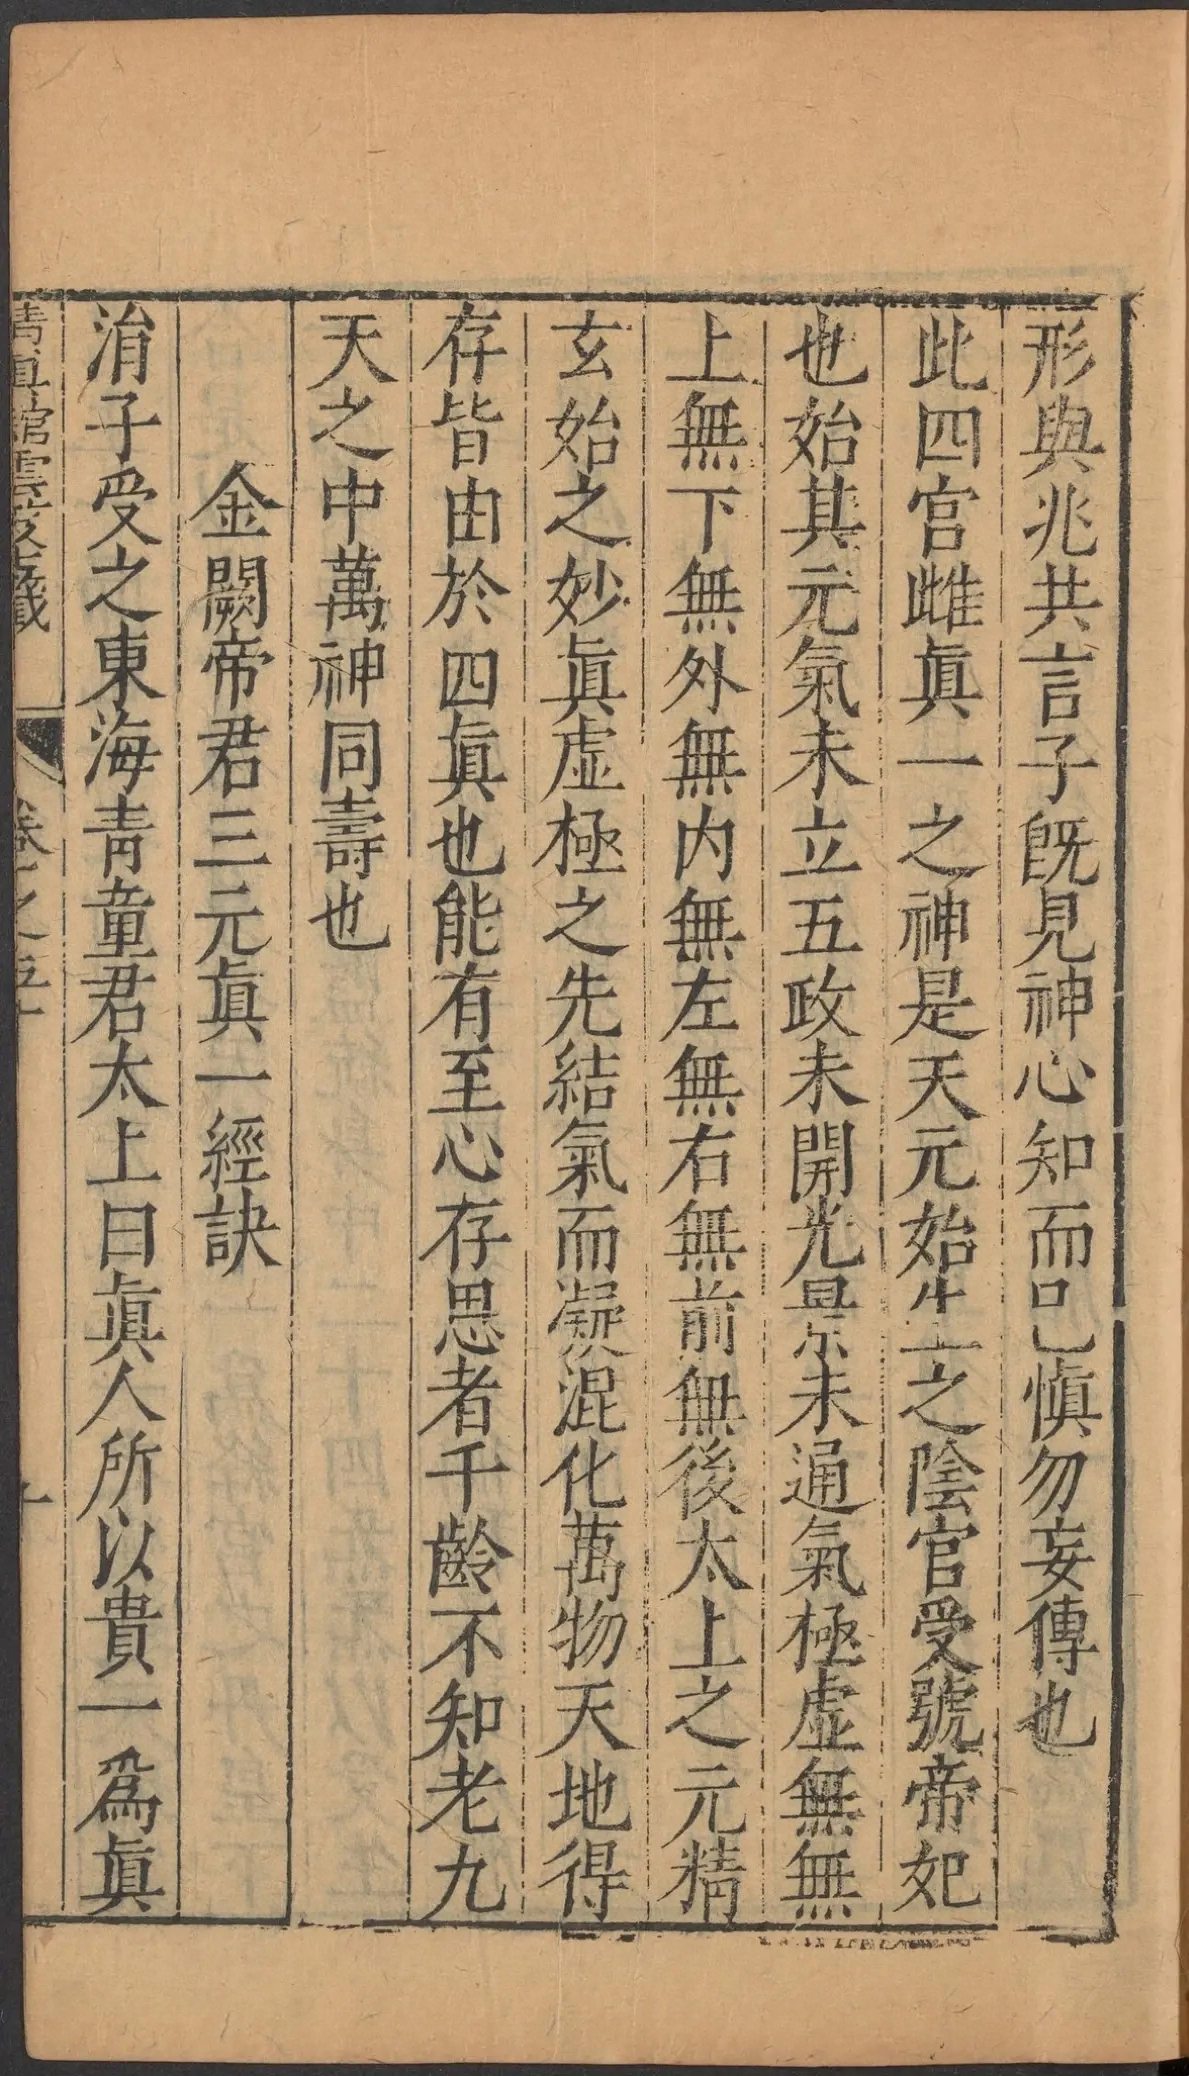 形與兆共言子旣見神心知而已慎勿妄傳也
此四宫雌眞一之神是天元始生之陰官受號帝妃
也始其元氣未立五政未開光景未通氣極虛無無
上無下無外無内無左無右無前無後太上之元精
玄始之妙眞虛極之先結氣而凝混化萬物天地得
存皆由於四眞也能有至心存思者千齡不知老九
天之中萬神同壽也
金闕帝君三元眞一經訣
涓子受之東海青童君太上曰眞人所以貴一爲眞
清真館雲笈七籤
卷之五十